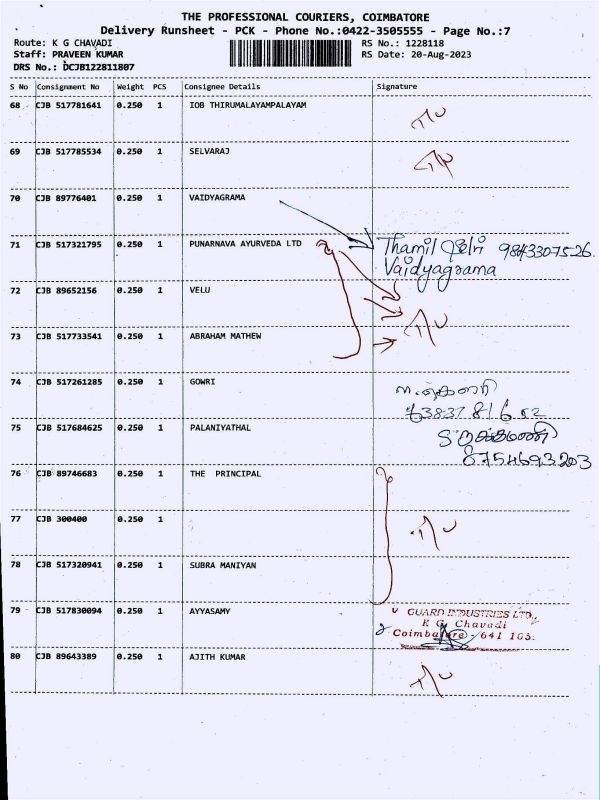 THE PROFESSIONAL COURIERS, COIMBATORE
Delivery Runsheet - PCK - Phone No.:0422-3505555 - Page No.:7
Route: K G CHAVADI RS No.: 1228118
Staff: PRAVEEN KUMAR RS Date: 20-Aug-2023
DRS No.: DCJB122811807
S No Consignment No Weight PCS Consignee Details Signature
68 CJB 517781641 0.250 1 IOB THIRUMALAYAMPALAYAM
69 CJB 517785534 0.250 1 SELVARAJ
70 CJB 89776401 0.250 1 VAIDYAGRAMA
71 CJB 517321795 0.250 1 PUNARNAVA AYURVEDA LTD Thamil 9843307526
Vaidyagrama
72 CJB 89652156 0.250 1 VELU
73 CJB 517733541 0.250 1 ABRAHAM MATHEW
74 CJB 517261285 0.250 1 GOWRI
75 CJB 517684625 0.250 1 PALANIYATHAL
8754693203
76 CJB 89746683 0.250 1 THE PRINCIPAL
77 CJB 300400 0.250 1
78 CJB 517320941 0.250 1 SUBRA MANIYAN
79 CJB 517830094 0.250 1 AYYASAMY GUARD INDUSTRIES LTD.,
K G Chavadi
Coimbatore - 641 105.
80 CJB 89643389 0.250 1 AJITH KUMAR